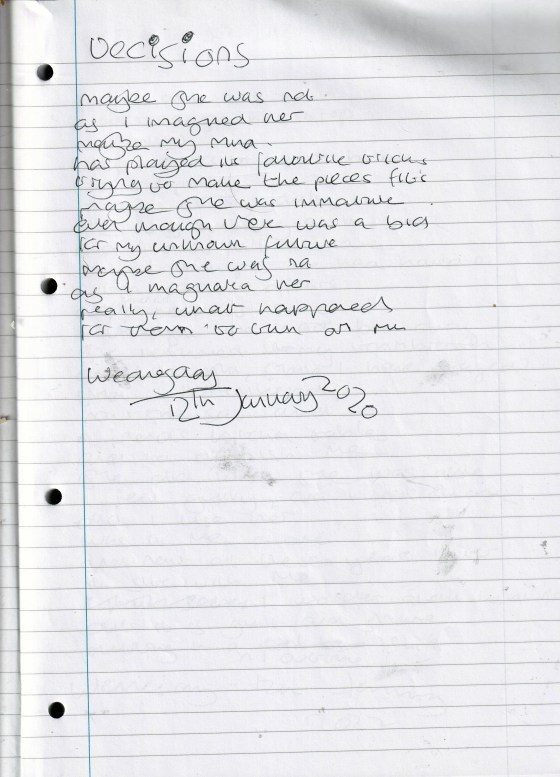 Decisions
maybe she was not
as I imagined her
maybe my mind
has played its favourite tricks
trying to make the pieces fit
maybe she was immature
even though was a big
for my unknown future
maybe she was not
as I imagined her
really, what happened
for them to turn on me
Wednesday
12th January 2020